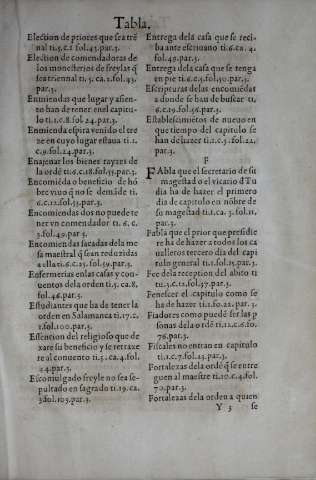 Tabla.
Election de priores que sea trē
nal ti.5.c.1 fol.43.par.3.
Election de comendadoras de
los monesterios de freylas q̃
sea triennal ti.5.ca.2.fol.43.
par.3.
Enmiendas que lugar y asien-
to han de tener en el capitu-
lo ti.1.c.8.fol.24.par.3.
Enmienda espira venido el tre
ze en cuyo lugar estaua ti.1.
c.9.fol.24.par.3.
Enajenar los bienes rayzes de
la ordē ti.6.c.18.fol.55.par.3.
Encomiēda o beneficio de hō
bre viuo q̃ no se demāde ti.
6.c.12.fol.53.par.3.
Encomiendas dos no puede te
ner vn comendador ti.6.c.
3.fol.49.par.3.
Encomiendas sacadas dela me
sa maestral q̃ sean reduzidas
a ella ti.6.c.25.fol.59.par.3.
Enfermerias en las casas y con-
uentos dela orden ti.5.ca.8.
fol.46.par.3.
Estudiantes que ha de tener la
orden en Salamanca ti.17.c.
1.fol.100.par.3.
Essencion del religioso que de
xare su beneficio y se retraxe
re al conuento ti.5.ca.4.fol.
44.par.3.
Escomulgado freyle no sea se-
pultado en sagrado ti.19.ca.
3.fol.103.par.3.
Entrega dela casa que se reci-
ba ante escriuano ti.6.ca.4.
fol.49.par.3.
Entrega dela casa que se tenga
en pie ti.6.c.5.fol.50.par.3.
Escripturas delas encomiēdas
a donde se han de buscar ti.
6.c.29.fol.56.par.3.
Establescimiētos de nueuo en
que tiempo del capitulo se
han de hazer ti.1.c.3.fol.22.
par.3.
F
FAbla que el secretario de su
magestad o el vicario d'Tu
dia ha de hazer el primero
dia de capitulo en nōbre de
su magestad ti.1.ca.3.fol.21.
par.3.
Fabla que el prior que presidie
re ha de hazer a todos los ca
ualleros tercero dia del capi
tulo general ti.1.fol.25.par.3.
Fee dela reception del abito ti
tu.3.c.12.fol.37.par.3.
Fenescer el capitulo como se
ha de hazer ti.1.fo.22.par.3.
Fiadores como puedē ser las p̱
sonas dela ordē ti.12.c.6.fo.
76.par.3.
Fiscales no entran en capitulo
ti.1.c.7.fol.23.par.3.
Fortalezas dela ordē q̃ se entre
guen al maestre ti.10.c.4.fol.
70.par.3.
Fortalezas dela orden a quien
Y 3 se